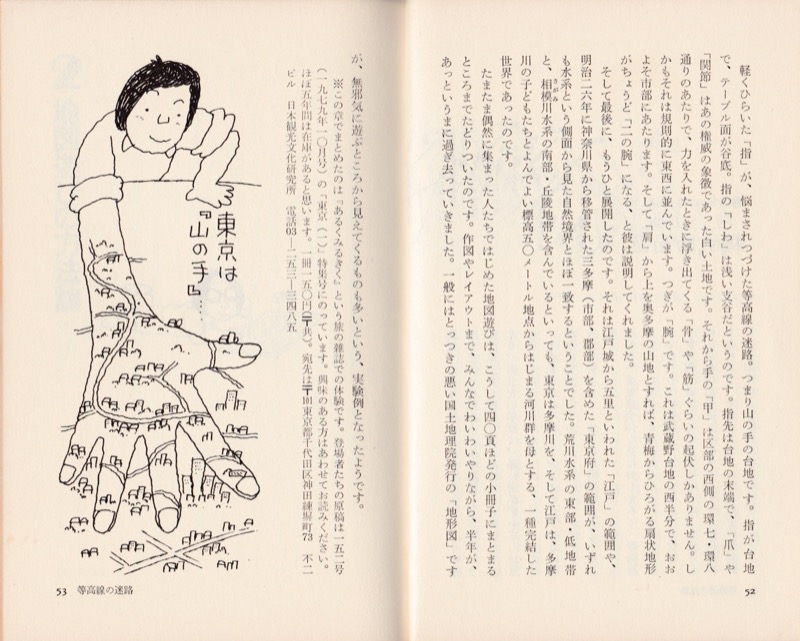 軽くひらいた「指」が、悩まされつづけた等高線の迷路。つまり山の手の台地です。指が台地
で、テーブル面が谷底。指の「しわ」は浅い支谷だというのです。指先は台地の末端で、「爪」や
「関節」はあの権威の象徴であった白い土地です。それから手の「甲」は区部の西側の環七・環八
通りのあたりで、力を入れたときに浮き出てくる「骨」や「筋」ぐらいの起伏しかありません。し
かもそれは規則的に東西に並んでいます。つぎが「腕」です。これは武蔵野台地の西半分で、おお
よそ市部にあたります。そして「肩」から上を奥多摩の山地とすれば、青梅からひろがる扇状地形
がちょうど「二の腕」になる、と彼は説明してくれました。
そして最後に、もうひと展開したのです。それは江戸城から五里といわれた「江戸」の範囲や、
明治二六年に神奈川県から移管された三多摩（市部、郡部）を含めた「東京府」の範囲が、いずれ
も水系という側面から見た自然境界とほぼ一致するということでした。荒川水系の東部・低地帯
と、相模川水系の南部・丘陵地帯を含んでいるといっても、東京は多摩川を、そして江戸は、多摩
さがみ
川の子どもたちとよんでよい標高五〇メートル地点からはじまる河川群を母とする、一種完結した
世界であったのです。
たまたま偶然に集まった人たちではじめた地図遊びは、こうして四〇頁ほどの小冊子にまとまる
ところまでたどりついたのです。作図やレイアウトまで、みんなでわいわいやりながら、半年が、
あっというまに過ぎ去っていきました。一般にはとっつきの悪い国土地理院発行の「地形図」です
52
が、無邪気に遊ぶところから見えてくるものも多いという、実験例となったようです。
※この章でまとめたのは『あるくみるきく』という旅の雑誌での体験です。登場者たちの原稿は一五二号
（一九七九年一〇月号）の「東京（一）」特集号にのっています。興味のある方はあわせてお読みください。
ほぼ五年間は在庫があると思います。一冊一五〇円（〒共）。宛先は〒101東京都千代田区神田練塀町73　不二
ビル　日本観光文化研究所　電話03―二五三―三四八五
東京は
『山の手』…
53　等高線の迷路